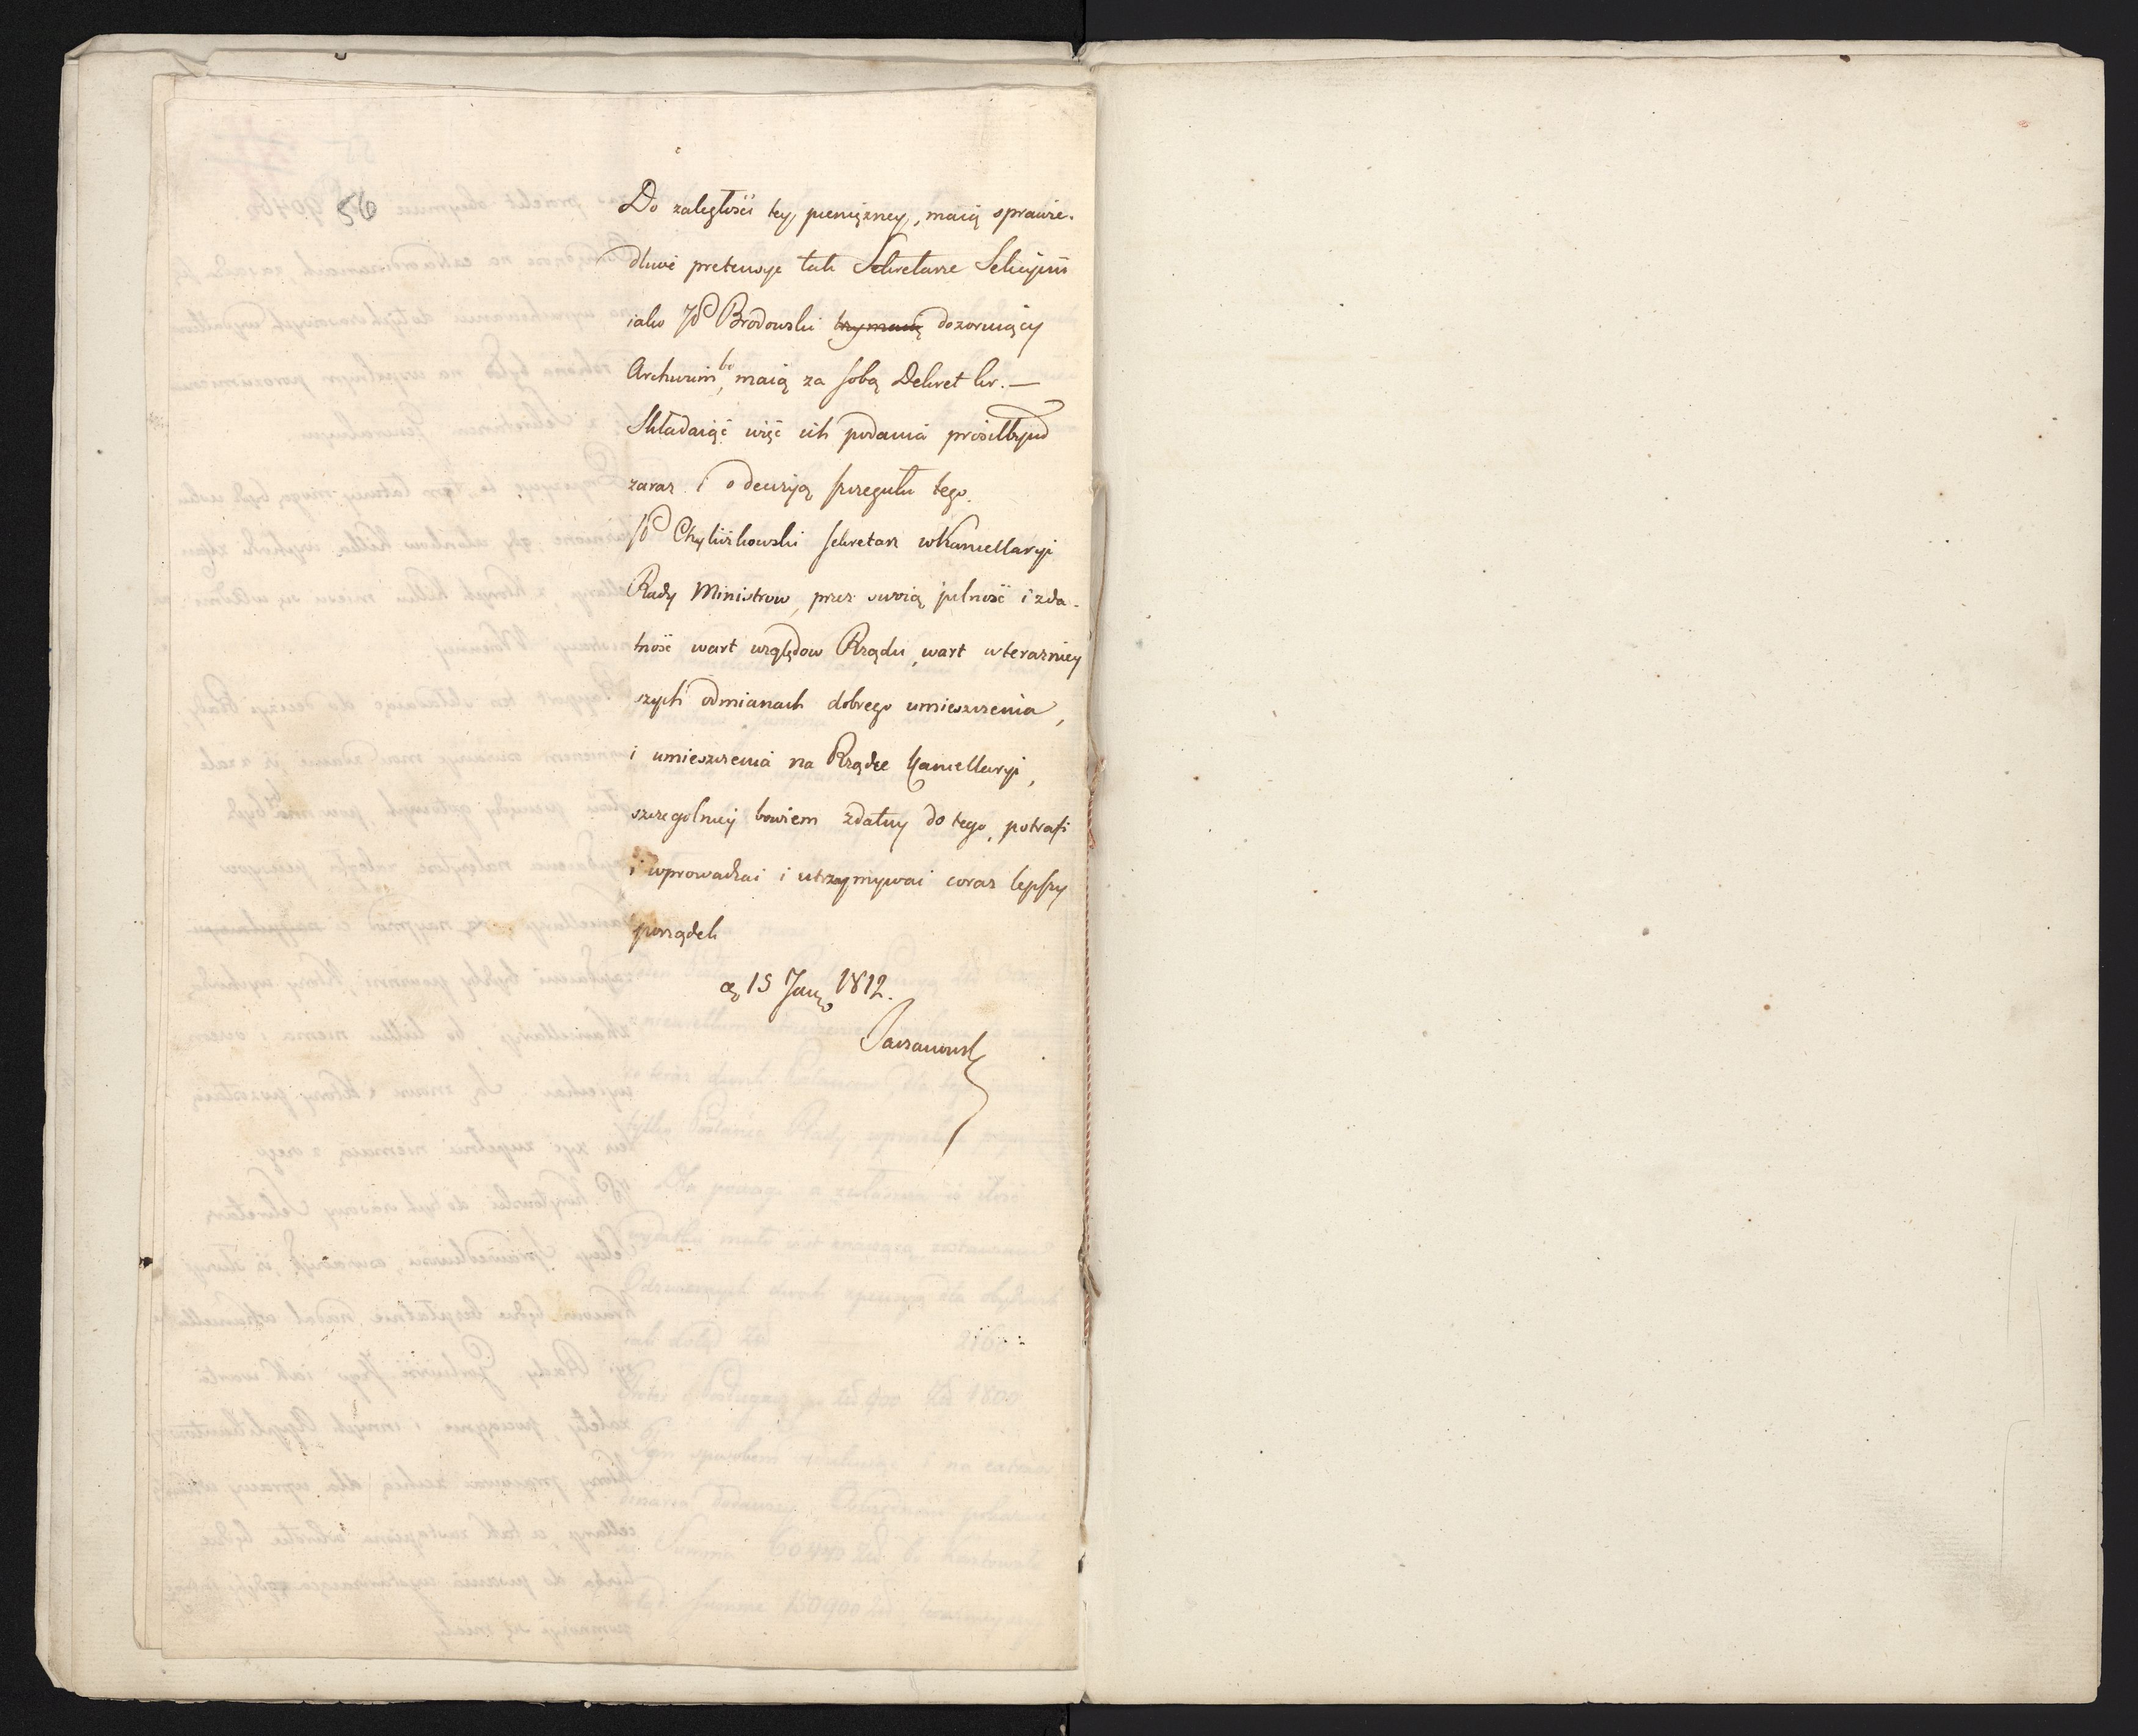 56
Do zaległości tey pieniężney, maią sprawie-
dliwe pretensye tak Sekretarze Sekcyini
iako JP Brodowski trzymaią dozoruiący
Archiwum, bo maią za sobą Dekret kr. —
Składaiąc więc ich podania
zaraz i o decyzyą szczegułu tego.
JP Chyliczkowski sekretarz w Kancellaryi
Rady Ministrow, przez swoią pilność i zda-
tność wart względow Rządu, wart w terazniey
szych odmianach dobrego umieszczenia,
i umieszczenia na Rządcę Kancellaryi,
szczegolniey bowiem zdatny do tego, potrafi
i wprowadzać i utrzymywać coraz lepszy
porządek
15 Janro 1812.